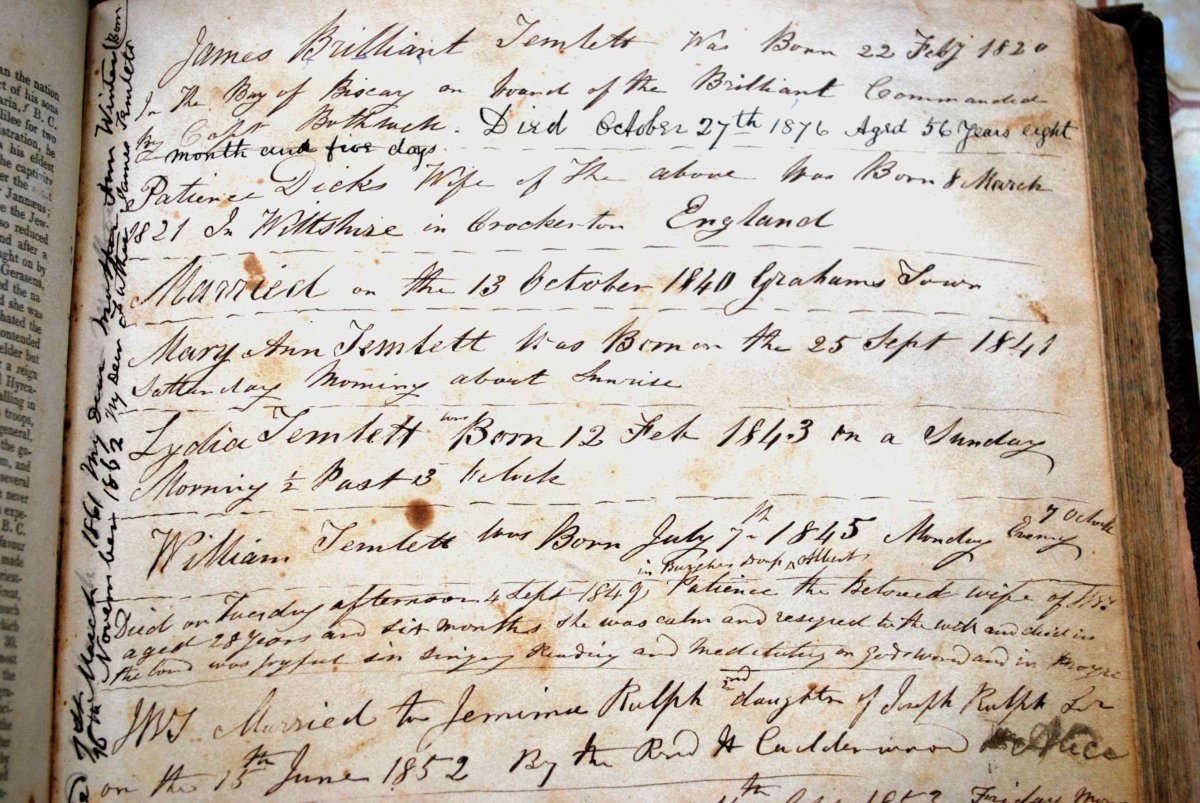 James Brilliant Temlett Was Born 22 Feby 1820
In The Bay of Biscay on board of the Brilliant Commanded
By Capt Bothwick. Died October 27th 1876 Aged 56 Years eight
month and five days
Patience Dicks Wife of The above Was Born 8 March
1821 In Wiltshire in Crockerton England
Married on the 13 October 1840 Grahams Town
Mary Ann Temlett Was Born on the 25 Sept 1841
Satterday Morning about Sunrise
Lydia Temlett was Born 12 Feb 1843 on a Sunday
Morning ½ Past 5 oclock
William Temlett was Born July 7th 1845 Monday Evening 7 oclock
in Burghers Albert
Died on Tuesday afternoon 4 Sept 1849 Patience the Beloved wife of JBT
aged 28 years and six months she was calm and resigned to the will and died in
the lord was joyful in singing Reading and Meditating on Gods word and in
JBT Married to Jemima Ralph 2nd daughter of Joseph Ralph Sr
on the 15th June 1852 By the Revd H Calderwood Alice
th 1853 Friday
7th March 1861 My Dear Mother Ann Winter Born
16 November 1862 My Dear Father James Temlett
an the nation
ct of his sons
aria, f B. C.
lilee for two
istration, he
his eldest
the captivity
er the
Jannæus;
re the Jew-
so reduced
nd after a
ught on by
Gerasens,
ed the na-
d she was
hated the
contended
elder but
a reign
Hyrca-
alling in
troops,
general,
the go-
m, and
several
never
expe-
B. C.
favour
made
riest-
reat,
much
hich
30.
most
the